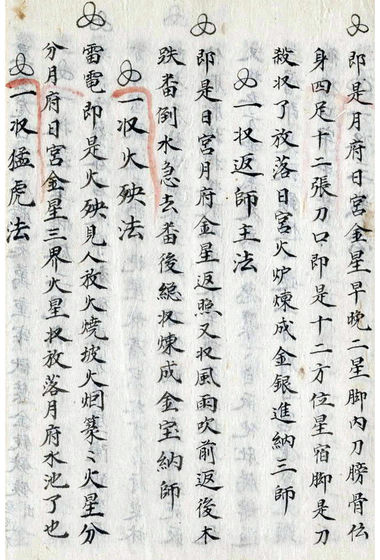 即是月府日宮金星早晚二星脚內刀膀骨伝
身四足十二張刀口即是十二方位星宿脚是刀
殺收了放落日宮火炉煉成金銀進納三師
一收返師主法
即是日宮月府金星返照又收風雨吹前返後木
跌畨倒水急去畨後総收煉成金宝納師
一收火殃法
雷電即是火殃見人放火燒披火烟蓁〻火星分
分月府日宮金星三界火星收放落月府水池了也
一收猛虎法